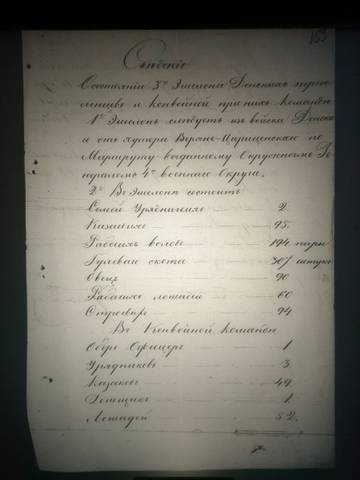 153
Сведение
О состоянии 3го Эшелона Донскихъ пересе
ленцевъ и Конвойной при нихъ Команды
1е Эшелонъ следуетъ изъ войска Донска
го отъ хутора Верхне-Цариценскаго по
Маршруту выданному Окружнымъ Ге
нераломъ 4го военного Округа.
2е Въ Эшелоне состоитъ
Семей Урядничьихъ 2.
Казачьихъ 95.
Рабочихъ воловъ 194 пары
Гулеваго скота 307 штукъ
Овецъ 90
Рабочихъ лошадей 60
Строевыхъ 94
Въ Конвойной Команде
Оберъ Офицеръ 1.
Урядниковъ 3
Казаковъ 49
1.
Лошадей 52.